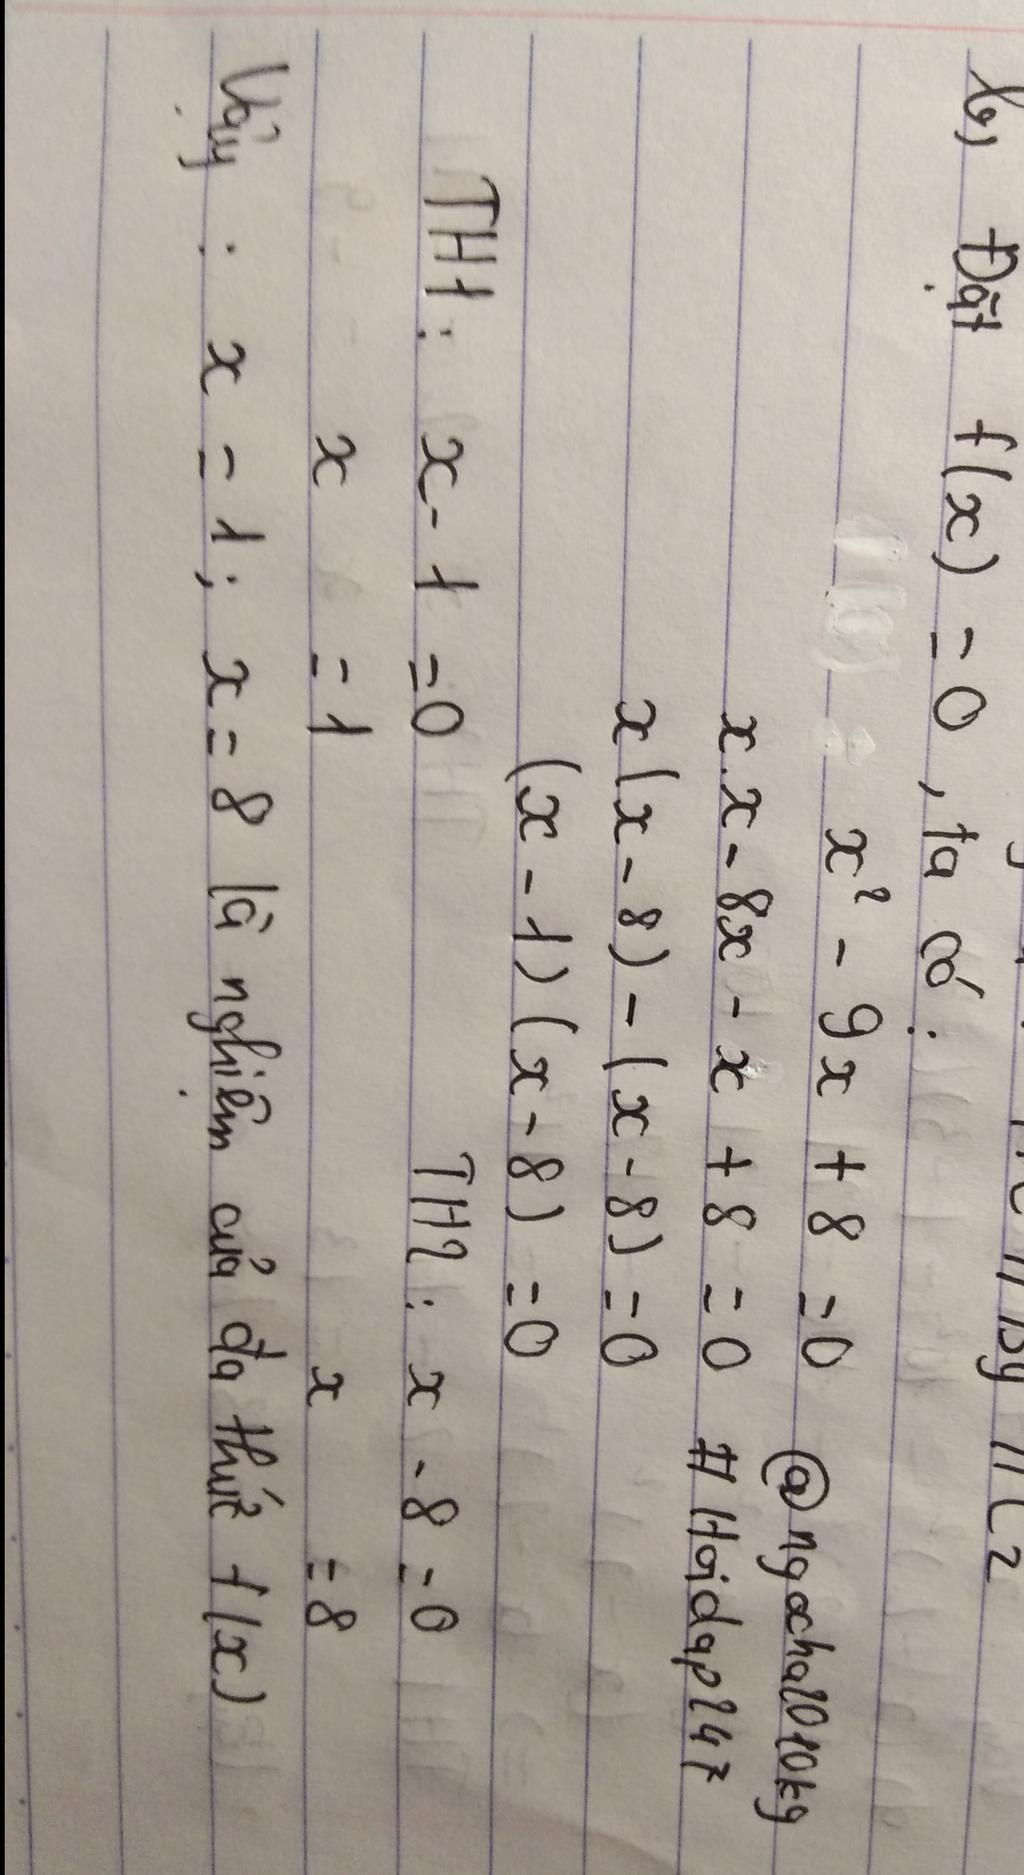 b, Đặt f(x) = 0, ta có:
x² - 9x + 8 = 0 @ngocha2010kg
x.x - 8x - x + 8 = 0 #Hoidap247
x(x - 8) - (x - 8) = 0
(x - 1)(x - 8) = 0
TH1: x - 1 = 0 TH2: x - 8 = 0
x = 1 x = 8
Vậy: x = 1; x = 8 là nghiệm của đa thức f(x)